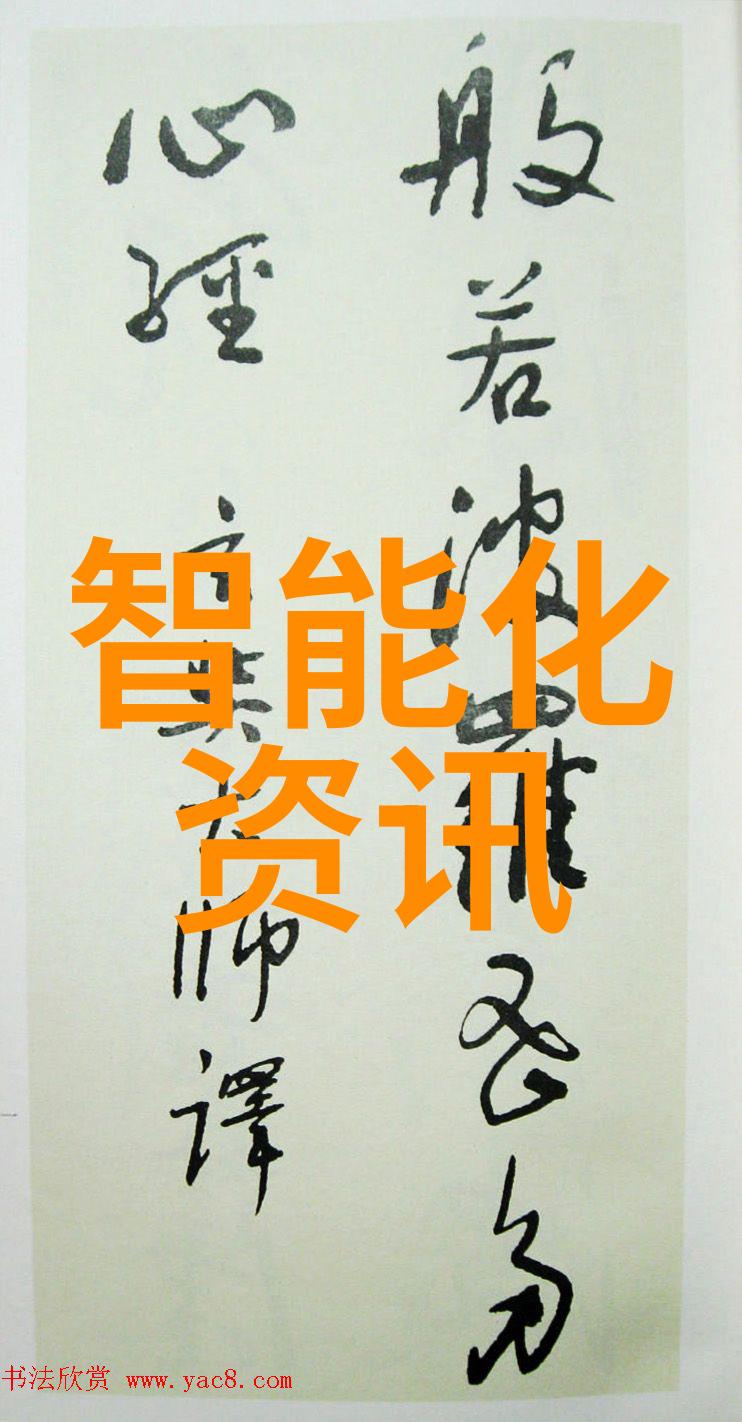 般若波羅蜜多
心經 玄奘師譯
智能化
资讯
书法欣赏 www.yac8.com